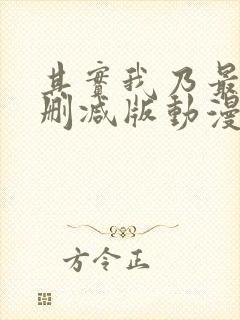 其實我乃最
刪減版動漫
方令正